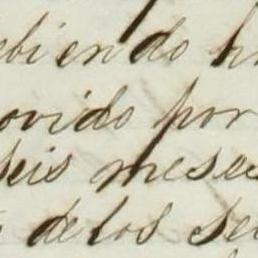 ebiendo h
ovido por
seis meses
de los se